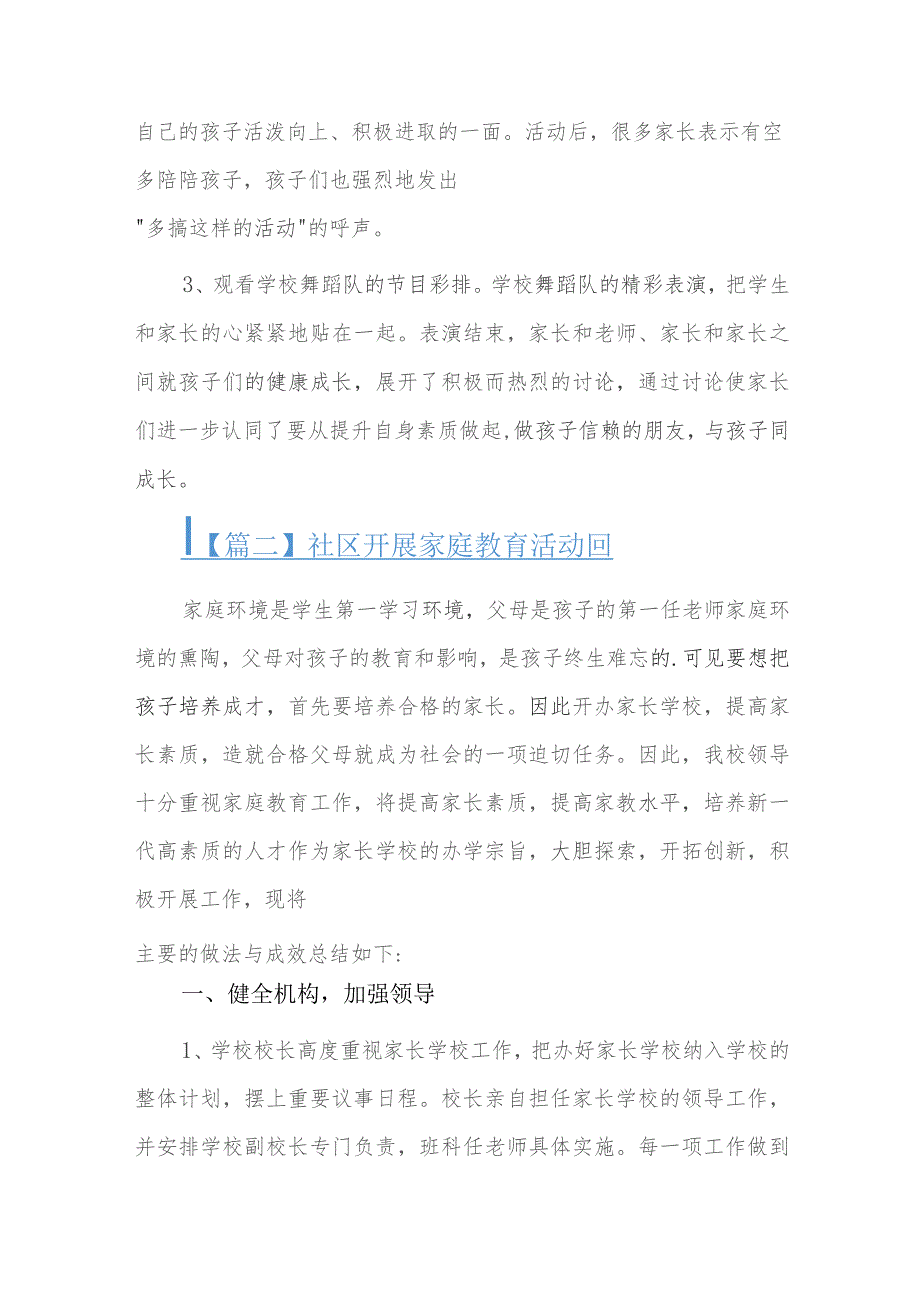 自己的孩子活泼向上、积极进取的一面。活动后，很多家长表示有空
多陪陪孩子，孩子们也强烈地发出
"多搞这样的活动"的呼声。
3、观看学校舞蹈队的节目彩排。学校舞蹈队的精彩表演，把学生
和家长的心紧紧地贴在一起。表演结束，家长和老师、家长和家长之
间就孩子们的健康成长，展开了积极而热烈的讨论，通过讨论使家长
们进一步认同了要从提升自身素质做起,做孩子信赖的朋友，与孩子同
成长。
【篇二】社区开展家庭教育活动回
家庭环境是学生第一学习环境，父母是孩子的第一任老师家庭环
境的熏陶，父母对孩子的教育和影响，是孩子终生难忘的.可见要想把
孩子培养成才，首先要培养合格的家长。因此开办家长学校，提高家
长素质，造就合格父母就成为社会的一项迫切任务。因此，我校领导
十分重视家庭教育工作，将提高家长素质，提高家教水平，培养新一
代高素质的人才作为家长学校的办学宗旨，大胆探索，开拓创新，积
极开展工作，现将
主要的做法与成效总结如下:
一、健全机构，加强领导
1、学校校长高度重视家长学校工作，把办好家长学校纳入学校的
整体计划，摆上重要议事日程。校长亲自担任家长学校的领导工作，
并安排学校副校长专门负责，班科任老师具体实施。每一项工作做到